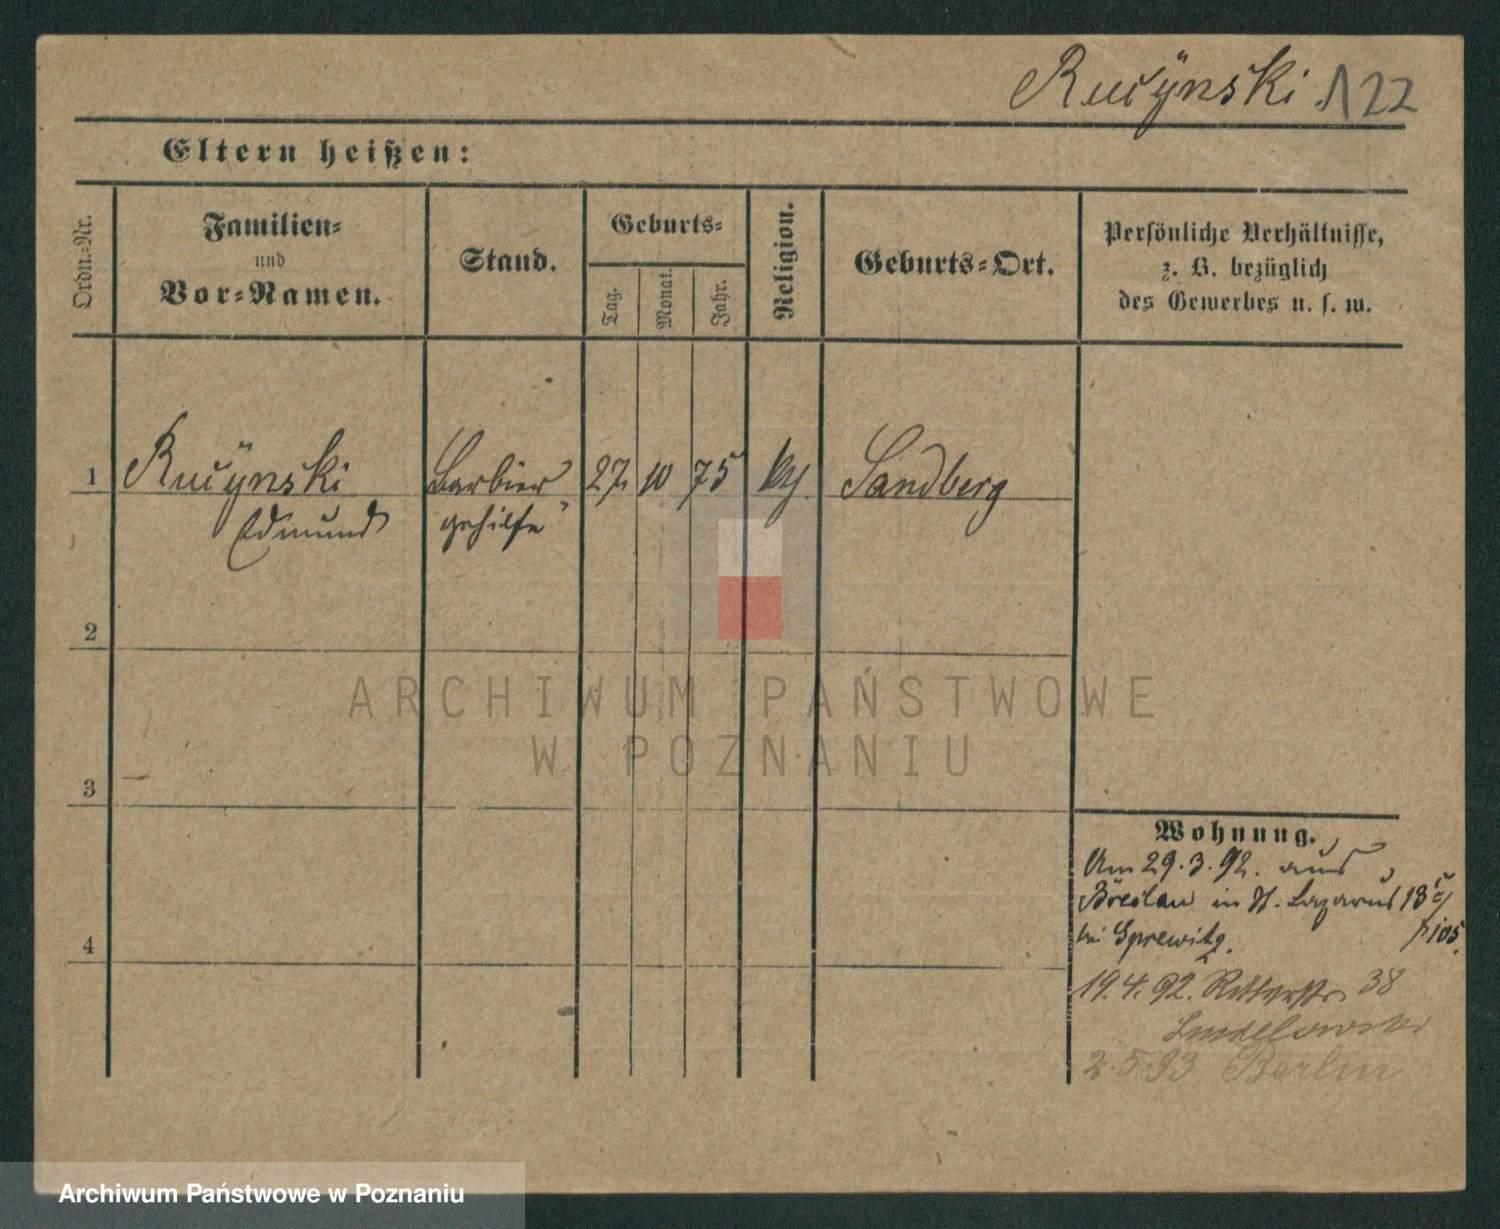 Ručÿnski 122
Eltern heißen:
Ordn.-Nr.
Familien-
und
Vor-Namen.
Stand.
Geburts-
Tag.
Monat.
Jahr.
Religion.
Geburts-Ort.
Persönliche Verhältnisse,
z. B. bezüglich
des Gewerbes u. s. w.
1 Ručÿnski Barbier 27 10 75 kg. Sandberg
Edmund gehilfe
2
3
4
ARCHIWUM PAŃSTWOWE
W POZNANIU
Wohnung.
Am 29.3.92. aus
Breslau in St. Lazarus 13
bei
19.4.92. Ritterstr 38
2.5.93 Berlin
Archiwum Państwowe w Poznaniu